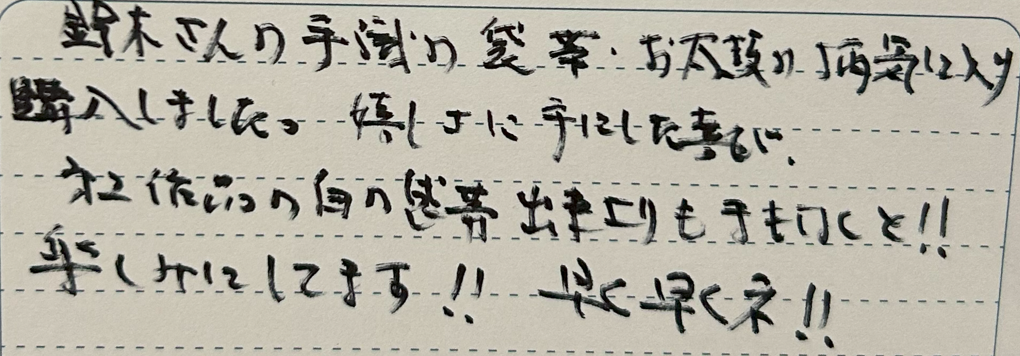 鈴木さんの手織の袋帯、お太鼓の柄気に入り
購入しました。嬉しさに手にした喜び、
作品の白の袋帯出来
楽しみにしてます!! 早く早くネ!!